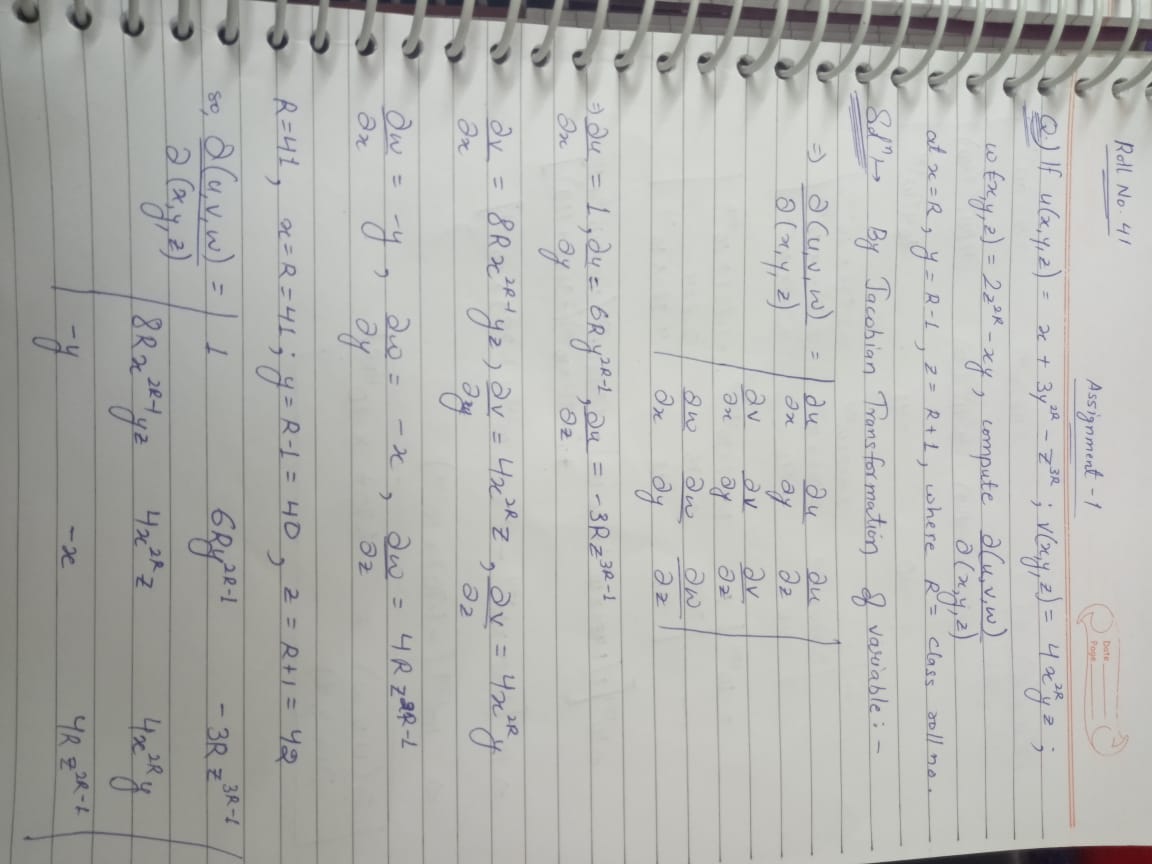 Roll No. 41
Assignment - 1
Date
Page
Q) If u(x,y,z) = x + 3y^2R - z^3R ; v(x,y,z) = 4x^2R yz ;
w(x,y,z) = 2z^2R - xy, compute ∂(u,v,w)/∂(x,y,z)
at x=R, y=R-1, z=R+1, where R = class roll no.
Solⁿ↦ By Jacobian Transformation of variable:-
⇒ ∂(u,v,w)/∂(x,y,z) = | ∂u/∂x ∂u/∂y ∂u/∂z
∂v/∂x ∂v/∂y ∂v/∂z
∂w/∂x ∂w/∂y ∂w/∂z |
⇒ ∂u/∂x = 1, ∂u/∂y = 6Ry^2R-1, ∂u/∂z = -3Rz^3R-1
∂v/∂x = 8Rx^2R-1 yz, ∂v/∂y = 4x^2R z, ∂v/∂z = 4x^2R y
∂w/∂x = -y, ∂w/∂y = -x, ∂w/∂z = 4Rz^2R-1
R=41, x=R=41; y=R-1=40, z=R+1=42
so, ∂(u,v,w)/∂(x,y,z) = | 1 6Ry^2R-1 -3Rz^3R-1
8Rx^2R-1 yz 4x^2R z 4x^2R y
-y -x 4Rz^2R-1 |